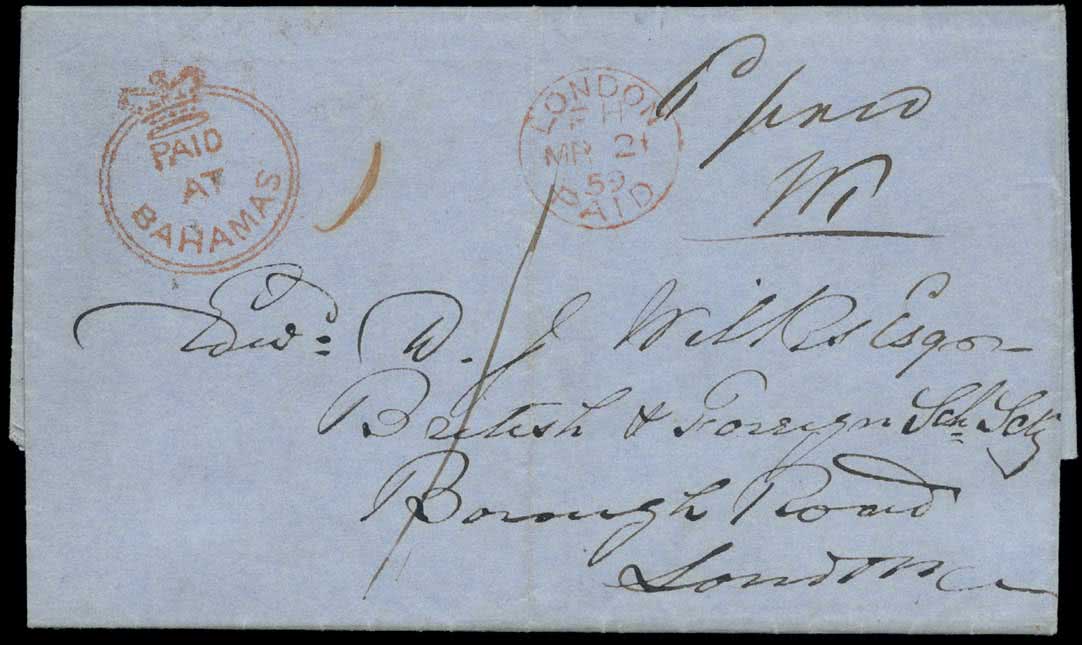 PAID
AT
BAHAMAS
LONDON
MR 21
59
PAID
paid
Edwd. D. J. Wilks Esqr
British & Foreign Sch. Scty
Borough Road
London